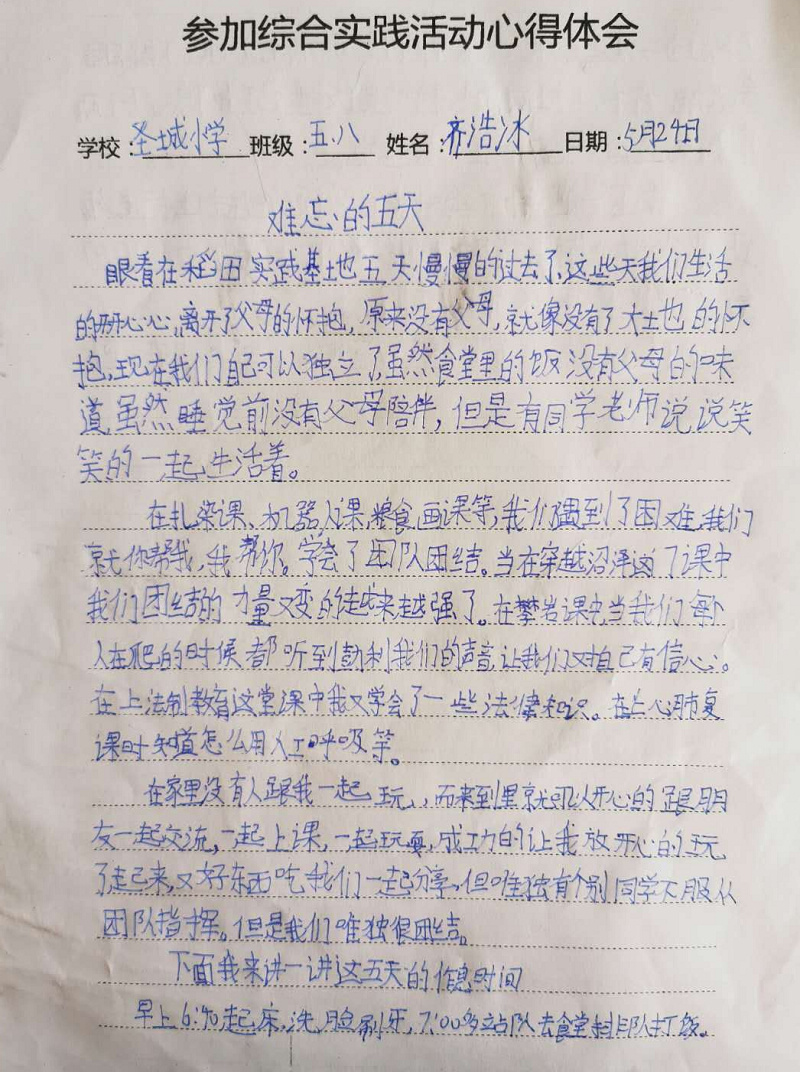 参加综合实践活动心得体会
学校:圣城小学 班级:五.八 姓名:齐浩冰 日期:5月24日
难忘的五天
眼看在稻田实践基地五天慢慢的过去了,这些天我们生活
的开开心心,离开了父母的怀抱,原来没有父母,就像没有了大土也的怀
抱,现在我们自己可以独立了虽然食堂里的饭没有父母的味
道,虽然睡觉前没有父母陪伴,但是有同学老师说说笑
笑的一起生活着。
在扎染课、机器人课,粮食画课等,我们遇到了困难,我们
就你帮我,我帮你。学会了团队团结。当在穿越沼泽这了课中
我们团结的力量又变的越来越强了。在攀岩课中,当我们每个
人在爬的时候都听到鼓利我们的声音,让我们对自己有信心。
在上法制教育这堂课中我又学会了一些法律知识。在上心肺复
课时知道怎么用人工呼吸等。
在家里没有人跟我一起玩,,而来到里就可以开心的跟朋
友一起交流,一起上课,一起玩耍,成功的让我放开心的玩
了起来,又好东西吃我们一起分享,但唯独有个别同学不服从
团队指挥。但是我们唯独很团结。
下面我来讲一讲这五天的作息时间
早上6:40起床,洗脸刷牙,7:00多站队去食堂排队打饭。